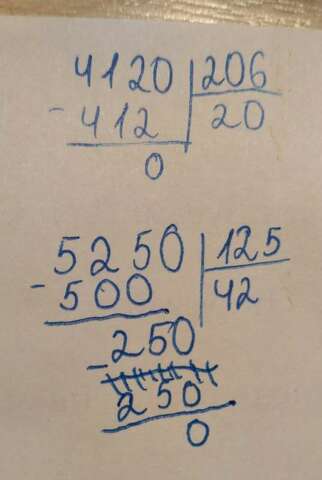 4120 206
- 412 20
0
5250 125
- 500 42
- 250
250
0